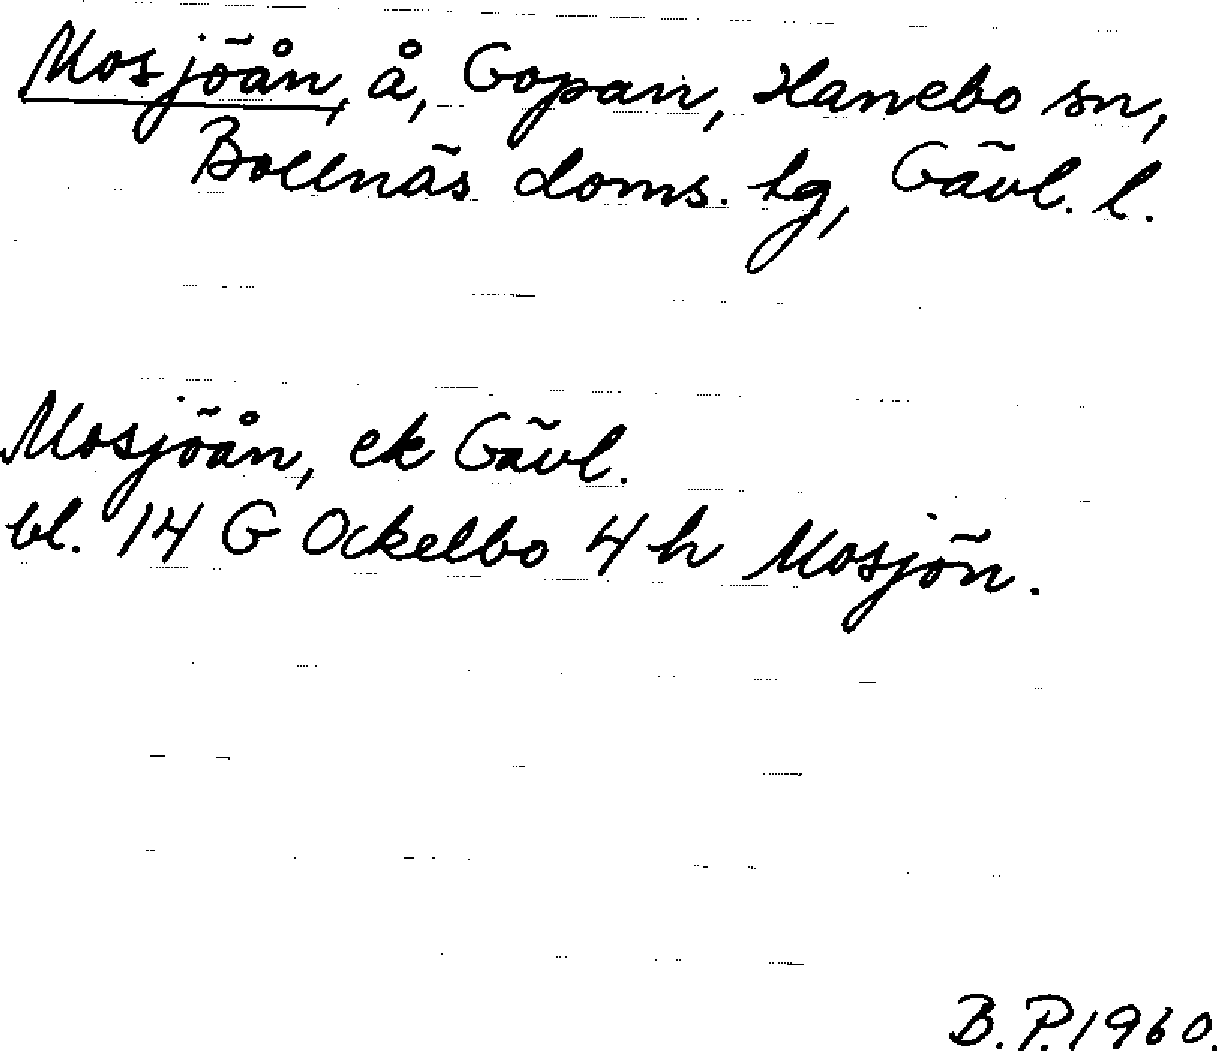 Mosjöån, å, Gopan, Hanebo sn,
Bollnäs doms. hg, Gävl. l.
Mosjöån, ek Gävl.
bl. 14 G Ockelbo 4 h Mosjön.
B.P.1960.